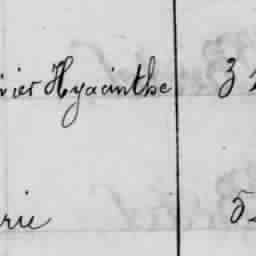 vier Hyacinthe 3
rie 5